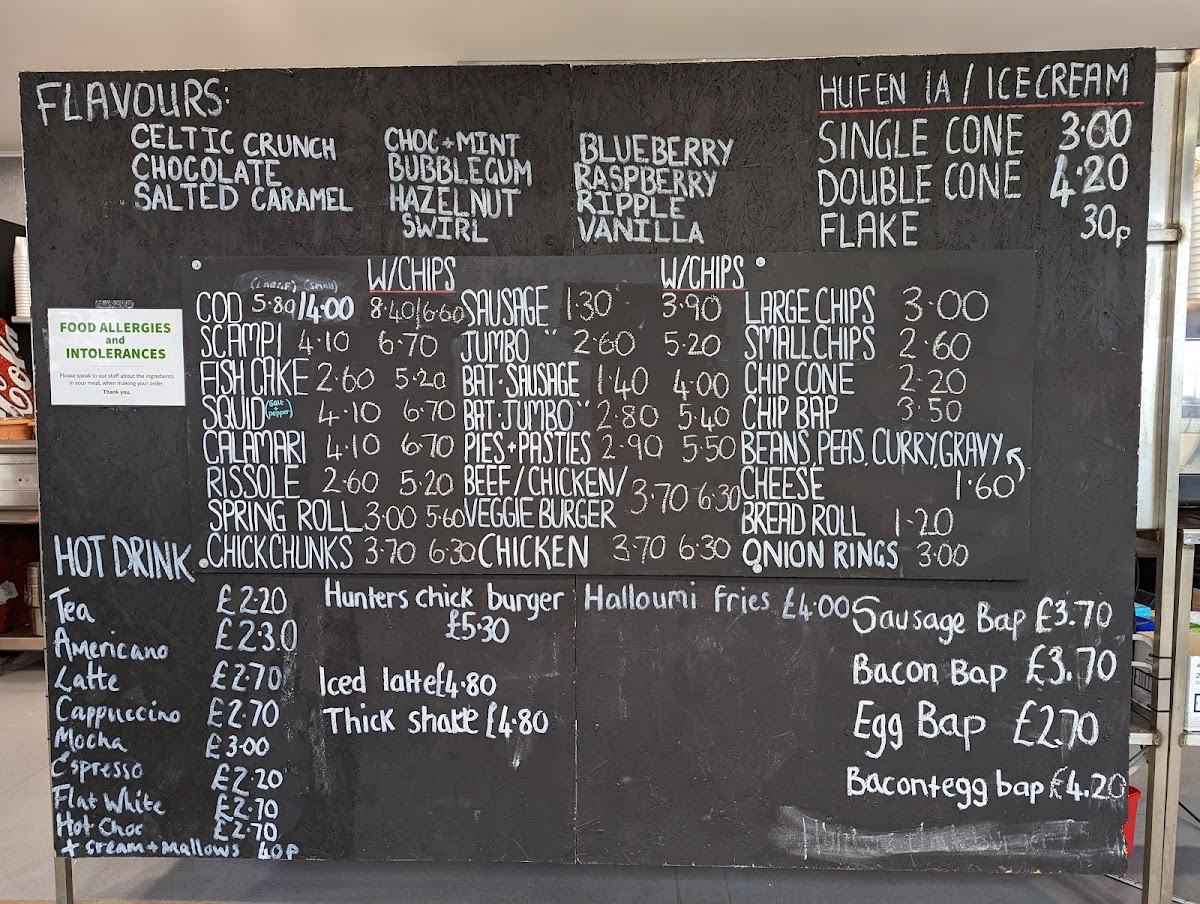 FLAVOURS:
CELTIC CRUNCH
CHOCOLATE
SALTED CARAMEL
CHOC + MINT
BUBBLEGUM
HAZELNUT
SWIRL
BLUEBERRY
RASPBERRY
RIPPLE
VANILLA
HUFEN IA / ICE CREAM
SINGLE CONE 3.00
DOUBLE CONE 4.20
FLAKE 30p
FOOD ALLERGIES
and
INTOLERANCES
Please speak to our staff about the ingredients
in your meal, when making your order.
Thank you.
(LARGE) (small) W/CHIPS
COD 5.80/4.00 8.40/6.60
SCAMPI 4.10 6.70
FISH CAKE 2.60 5.20
SQUID (Salt + pepper) 4.10 6.70
CALAMARI 4.10 6.70
RISSOLE 2.60 5.20
SPRING ROLL 3.00 5.60
CHICK CHUNKS 3.70 6.30
W/CHIPS
SAUSAGE 1.30 3.90
JUMBO " 2.60 5.20
BAT. SAUSAGE 1.40 4.00
BAT. JUMBO " 2.80 5.40
PIES + PASTIES 2.90 5.50
BEEF / CHICKEN /
VEGGIE BURGER 3.70 6.30
CHICKEN 3.70 6.30
LARGE CHIPS 3.00
SMALL CHIPS 2.60
CHIP CONE 2.20
CHIP BAP 3.50
BEANS, PEAS, CURRY, GRAVY
CHEESE 1.60
BREAD ROLL 1.20
ONION RINGS 3.00
HOT DRINK
Tea £2.20
Americano £2.30
Latte £2.70
Cappuccino £2.70
Mocha £3.00
Espresso £2.20
Flat White £2.70
Hot Choc £2.70
+ cream + mallows 40p
Hunters chick burger
£5.30
Iced latte £4.80
Thick shake £4.80
Halloumi Fries £4.00
Sausage Bap £3.70
Bacon Bap £3.70
Egg Bap £2.70
Bacon+egg bap £4.20